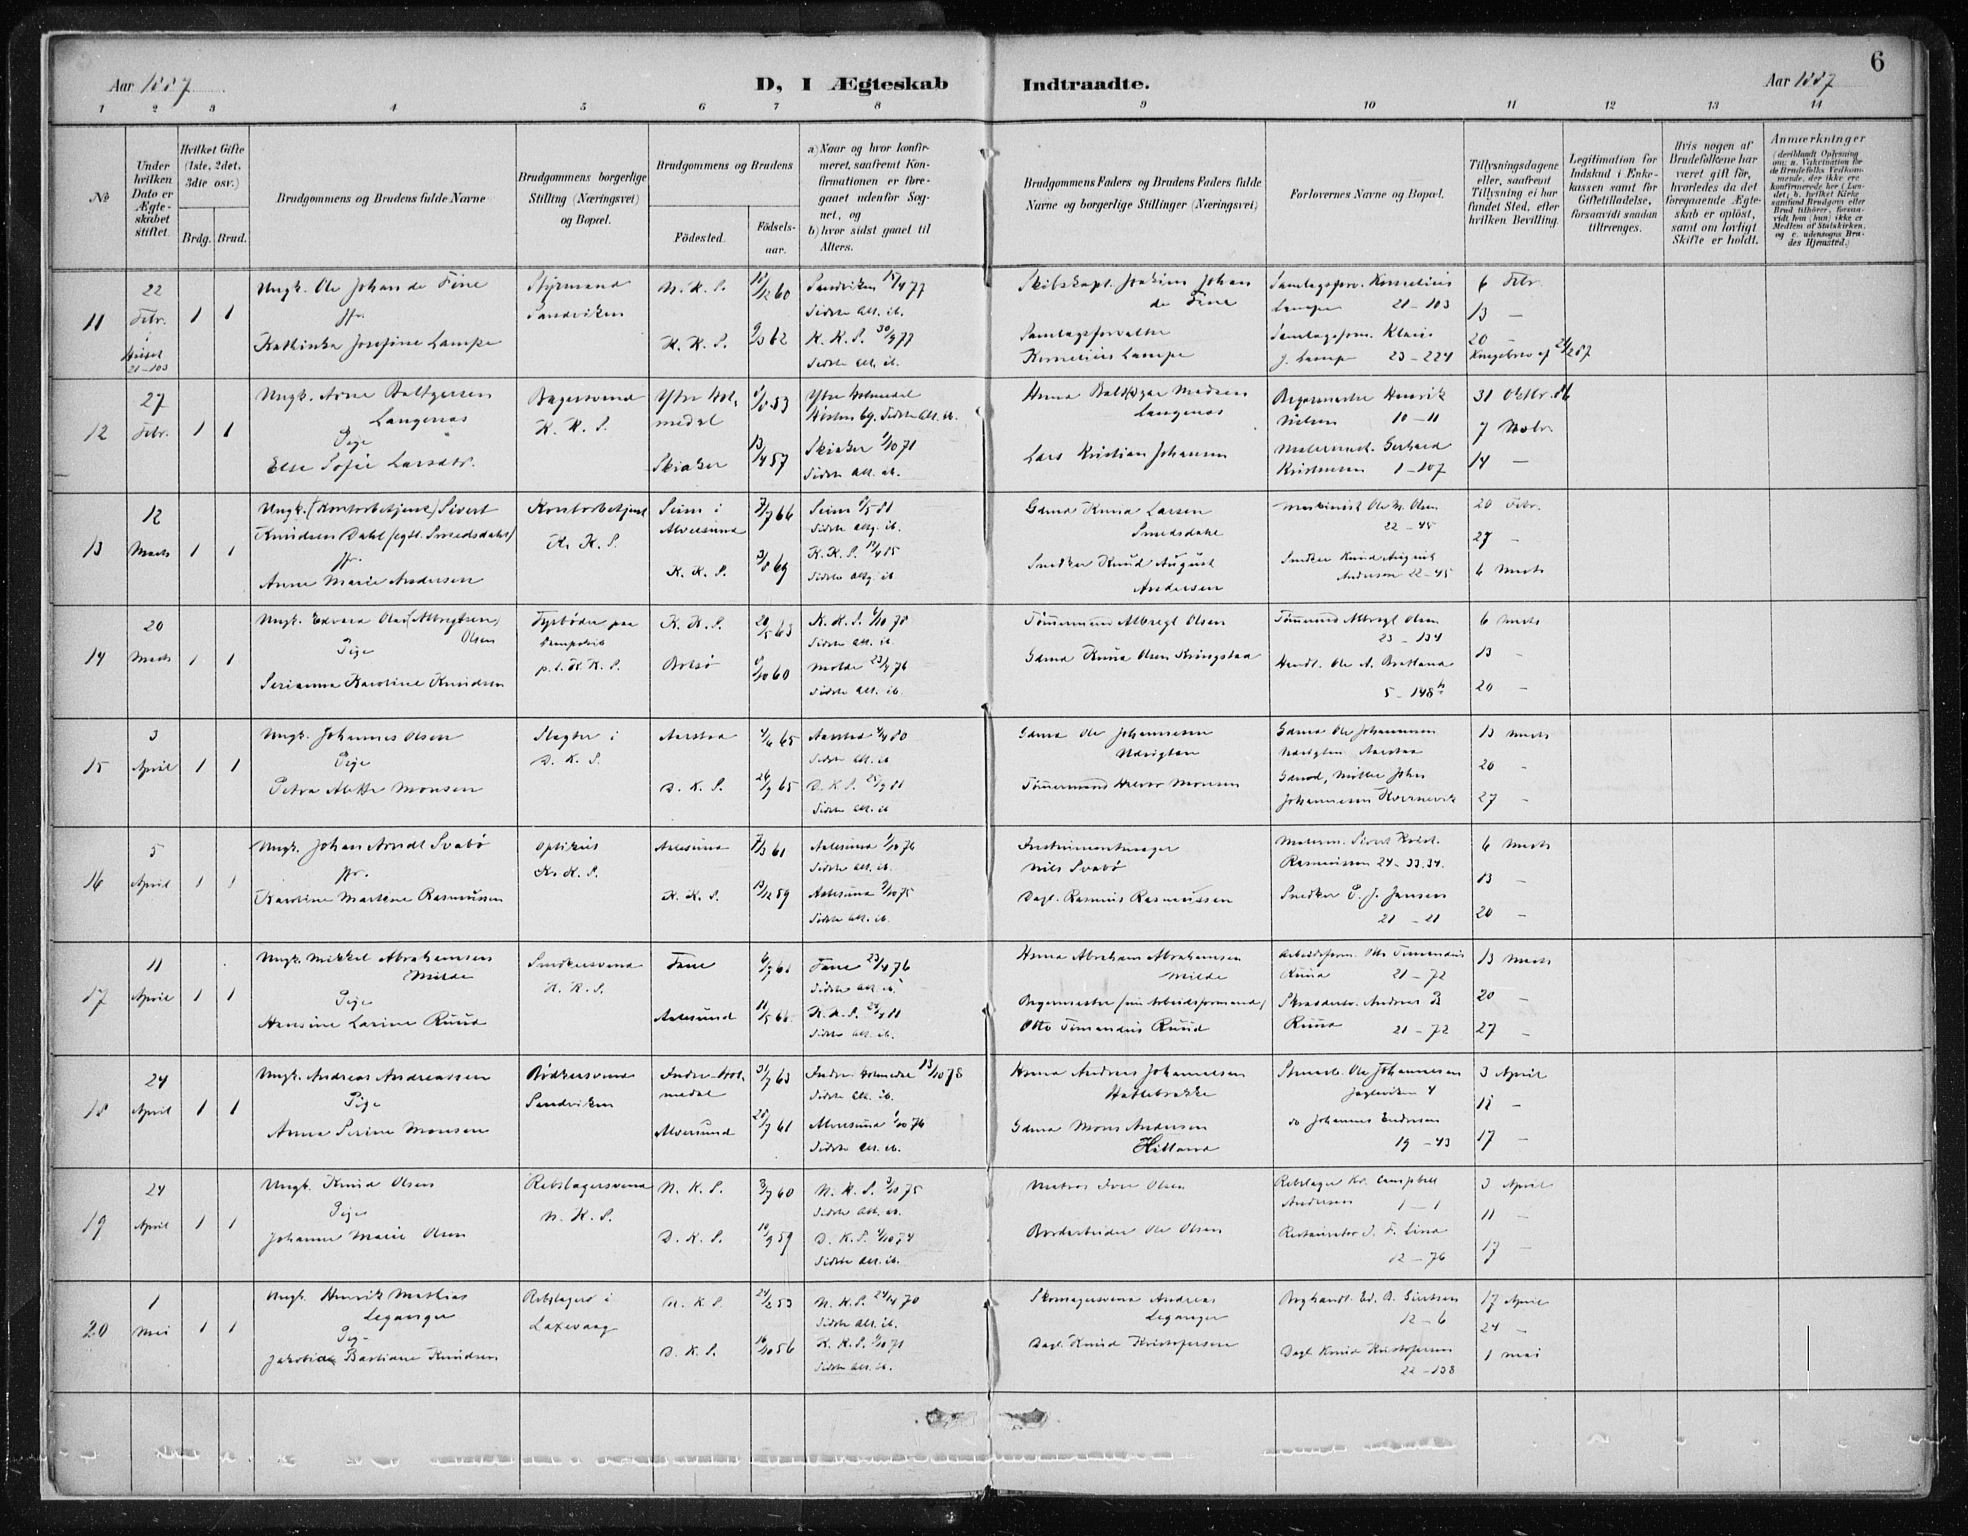 6
Aar 1887
D, I Ægteskab Indtraadte.
Aar 1887
1 2 3 4 5 6 7 8 9 10 11 12 13 14
№
Under hvilken Dato er Ægteskabet stiftet.
Hvilket Gifte (1ste, 2det, 3die osv.)
Brdg. Brud.
Brudgommens og Brudens fulde Navne
Brudgommens borgerlige Stilling (Næringsvei) og Bopæl.
Brudgommens og Brudens
Fødested.
Fødselsaar.
a) Naar og hvor konfirmeret, saafremt Konfirmationen er foregaaet udenfor Sognet, og
b) hvor sidst gaaet til Alters.
Brudgommens Faders og Brudens Faders fulde Navne og borgerlige Stillinger (Næringsvei)
Forlovernes Navne og Bopæl.
Tillysningsdagene eller, saafremt Tillysning ei har fundet Sted, efter hvilken Bevilling.
Legitimation for Indskud i Enkekassen samt for Giftetilladelse, forsaavidt saadan tiltrænges.
Hvis nogen af Brudefolkene har været gift før, hvorledes da det foregaaende Ægteskab er opløst, samt om lovligt Skifte er holdt.
Anmærkninger
11
22 Febr. i Huset 21-103
1 1
Ungk. Ole Johan de Fine
Katinka Josefine Lampe
Styrmand Sandviken
N. K. S.
K. K. S.
11/12 60
9/3 62
Sandviken 15/4 77
Sidste Alt. ib.
K. K. S. 30/9 77
Sidste Alt. ib.
Skibskapt. Joakim Johan de Fine
Samlagsforvalter Kornelius Lampe
Samlagsforv. Kornelius Lampe 21-103
Samlagsform. Klaus J. Lampe 23-224
6 Febr.
13 —
20 —
Kongebrev af 21/2 87
12
27 Febr.
1 1
Ungk. Arne Baltzersen Langenæs
Pige
Else Sofie Larsdtr.
Bagersvend K. K. S.
Ytre Holmedal
Skiaker
1/8 53
13/4 57
Ytre Holmedal
Høsten 69. Sidste Alt. ib.
Skiaker 1/10 71
Sidste Alt. ib.
Hmd Baltzar Madsen Langenæs
Lars Kristian Johansen
Bagermester Henrik Nielsen 10-11
Malersvend. Gerhard Kristensen 1-107
31 Oktbr. 86
7 Novbr.
14 —
13
12 Marts
1 1
Ungk. (Kontorbetjent) Sivert
Knudsen Dahl (egtl. Smedsdahl)
Anne Marie Andersen
Kontorbetjent
K. K. S.
Seim i Alversund
K. K. S.
7/7 66
3/8 69
Seim 8/5 81
Sidste Altg. ib.
K. K. S. 12/4 85
Sidste Altg. ib.
Gdmd Knud Larsen Smedsdahl
Snedker Knud August Andersen
Maskinist Ole M. Olsen 22-45
Snedker Knud August Andersen 22-45
20 Febr.
27 —
6 Marts
14
20 Marts
1 1
Ungk. Edvard Olai (Albregtsen) Olsen
Pige
Serianna Karoline Knudsen
Fyrbøder paa Dampskib
p. t. K. K. S.
K. K. S.
Bolsø
20/5 63
9/10 60
K. K. S. 6/10 78
Sidste Alt. ib.
Molde 23/4 76
Sidste Alt. ib.
Tømmermand Albregt Olsen
Gdmd Knud Olsen Kringstad
Tømmermd Albregt Olsen 23-134
Handl. Ole A. Bratland 5-148b
6 Marts
13 —
20 —
15
3 April
1 1
Ungk. Johannes Olsen
Pige
Petra Alette Monsen
Slagter i D. K. S.
Aarstad
D. K. S.
4/6 65
26/9 65
Aarstad 4/4 80
Sidste Alt. ib.
D. K. S. 25/9 81
Sidste Alt. ib.
Gdmd Ole Johannesen Natvigten
Tømmermand Halvor Monsen
Gdmd Ole Johannesen Aarstad
Johannesen Kvernevik
13 Marts
20 —
27 —
16
5 April
1 1
Ungk. Johan Arndt Svabø
Karoline Martine Rasmussen
Optikus
K. K. S.
Aalesund
K. K. S.
7/3 61
13/12 59
Aalesund 1/10 76
Sidste Alt. ib.
Aalesund 3/10 75
Sidste Alt. ib.
Instrumentmager Nils Svabø
Dagl. Rasmus Rasmussen
Malerm. Sivert Krist. Rasmussen 24-33.34.
Snedker P. J. Jansen 21-21
6 Marts
13 —
20 —
17
11 April
1 1
Ungk. Mikkel Abrahamsen Milde
Pige
Hansine Larine Ruud
Snedkersvend K. K. S.
Fane
Aalesund
6/7 61
11/5 66
Fane 23/4 76
Sidste Alt. ib.
K. K. S. 24/4 81
Sidste Alt. ib.
Hmd Abraham Abrahamsen Milde
Otto Timandus Ruud
Arbeidsform. Otto Timandus Ruud 21-72
Skræddersv. Andreas B Ruud 21-72
13 Marts
20 —
27 —
18
24 April
1 1
Ungk. Andreas Andreassen
Pige
Anna Serine Monsen
Bødkersvend Sandviken
Indre Holmedal
Alversund
31/7 63
28/7 61
Indre Holmedal 13/10 78
Sidste Alt. ib.
Alversund 1/10 76
Sidste Alt. ib.
Hmd Andreas Johannesen Hatlebrække
Gdmd Mons Andersen Hilland
Ole Johannesen 4
do Johannes Endresen 19-43
3 April
11 —
17 —
19
24 April
1 1
Ungk. Knud Olsen
Pige
Johanne Marie Olsen
Rebslagersvend N. K. S.
N. K. S.
D. K. S.
3/7 60
10/9 59
N. K. S. 3/10 75
Sidste Alt. ib.
D. K. S. 4/10 74
Sidste Alt. ib.
Matros Iver Olsen
Bordarbeider Ole Olsen
Rebslager Kr. Campbell Andersen 1-1
Restauratør J. F. Lind 12-76
3 April
11 —
17 —
20
1 Mai
1 1
Ungk. Henrik Mathias Leganger
Pige
Jakobine Bastiane Knudsen
Rebslager i Laxevaag
N. K. S.
D. K. S.
24/2 53
16/10 56
N. K. S. 24/4 70
Sidste Alt. ib.
K. K. S. 1/10 71
Sidste Alt. ib.
Skomagersvend Andreas Leganger
Dagl. Knud Kristofersen
Boghandl. Ed. B. Giertsen 12-6
Dagl. Knud Kristofersen 22-138
17 April
24 —
1 Mai